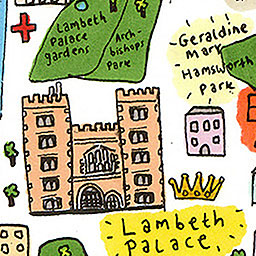 Lambeth
Palace
gardens
Arch-
bishops
Park
Geraldine
Mary
Hamsworth
Park
Lambeth
Palace,